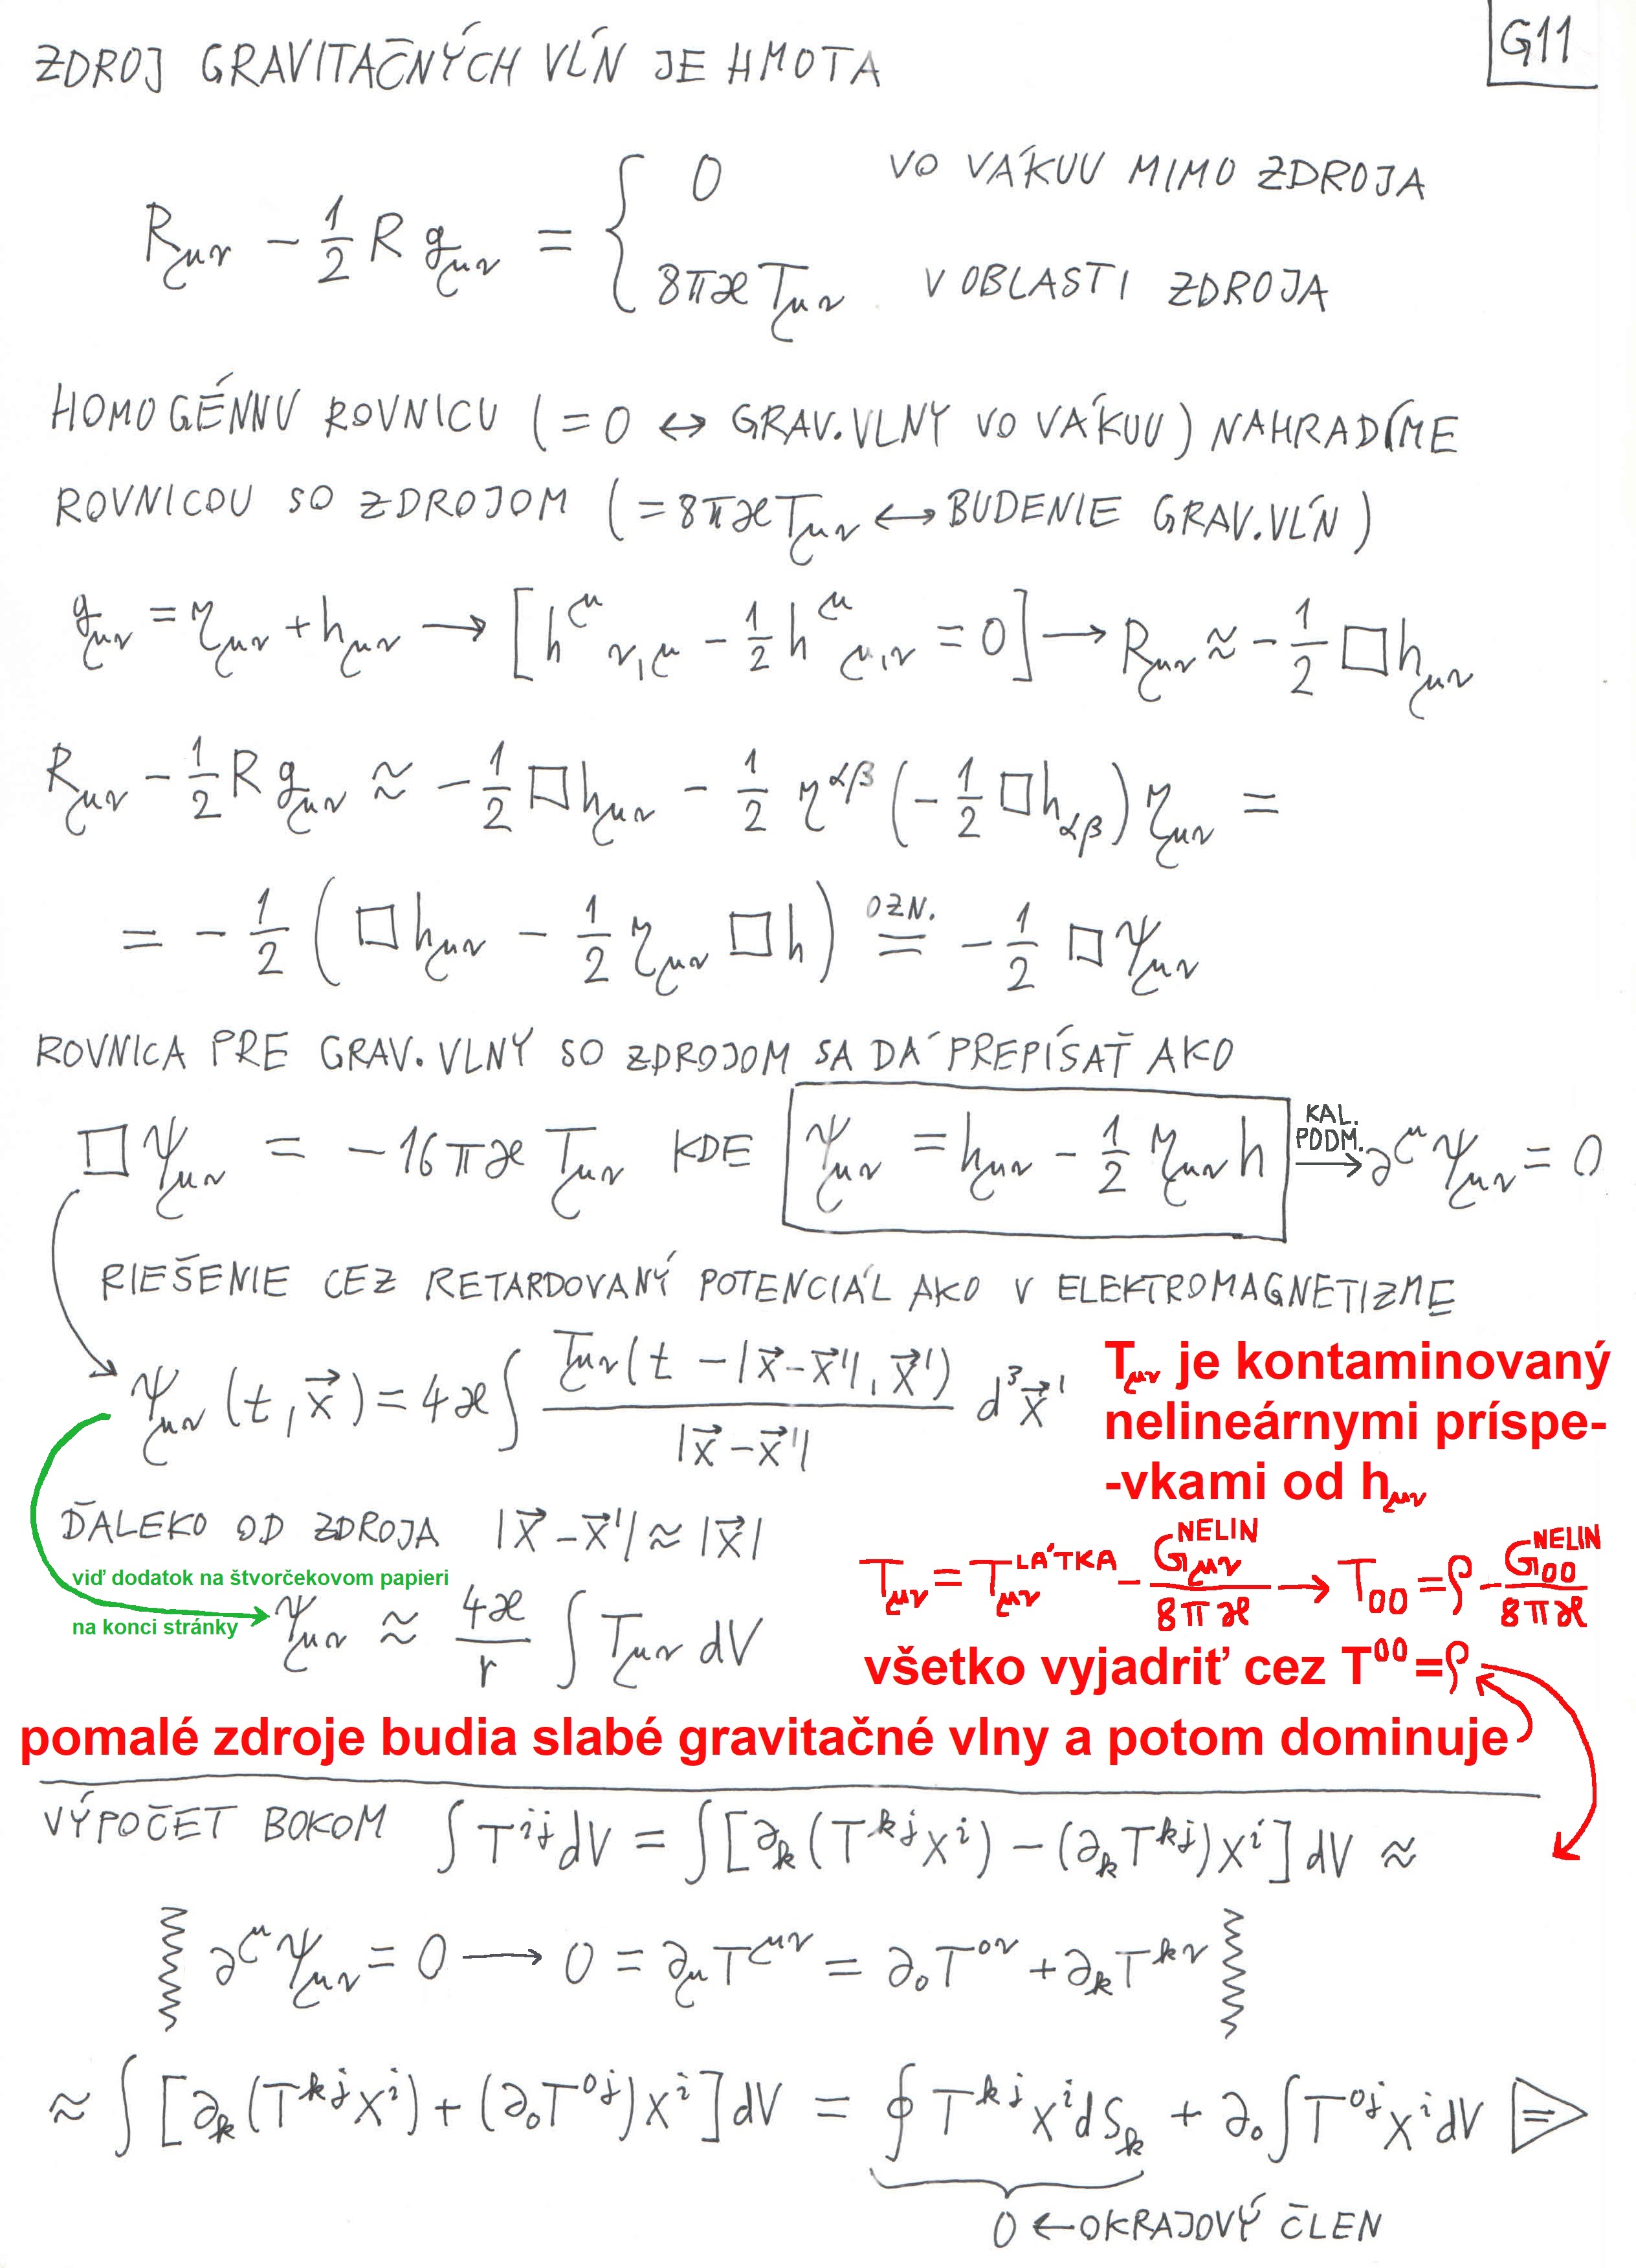 ZDROJ GRAVITAČNÝCH VĹN JE HMOTA
G11
R_μν − 1/2 R g_μν = { 0 VO VÁKUU MIMO ZDROJA
8πϰT_μν V OBLASTI ZDROJA
HOMOGÉNNU ROVNICU (= 0 ↔ GRAV.VLNY VO VÁKUU) NAHRADÍME
ROVNICOU SO ZDROJOM (= 8πϰT_μν ↔ BUDENIE GRAV.VĹN)
g_μν = η_μν + h_μν → [h^μ_ν,μ − 1/2 h^μ_μ,ν = 0] → R_μν ≈ −1/2 □h_μν
R_μν − 1/2 R g_μν ≈ −1/2 □h_μν − 1/2 η^αβ (−1/2 □h_αβ) η_μν =
= −1/2 (□h_μν − 1/2 η_μν □h) OZN. = −1/2 □ψ_μν
ROVNICA PRE GRAV.VLNY SO ZDROJOM SA DÁ PREPÍSAŤ AKO
□ψ_μν = −16πϰ T_μν KDE ψ_μν = h_μν − 1/2 η_μν h KAL. PODM. → ∂^μ ψ_μν = 0
RIEŠENIE CEZ RETARDOVANÝ POTENCIÁL AKO V ELEKTROMAGNETIZME
ψ_μν (t, x⃗) = 4ϰ ∫ T_μν(t − |x⃗−x⃗'|, x⃗') / |x⃗−x⃗'| d³x⃗'
T_μν je kontaminovaný
nelineárnymi príspe-
-vkami od h_μν
ĎALEKO OD ZDROJA |x⃗−x⃗'| ≈ |x⃗|
viď dodatok na štvorčekovom papieri
na konci stránky
ψ_μν ≈ 4ϰ/r ∫ T_μν dV
T_μν = T_μν^LÁTKA − G_μν^NELIN / 8πϰ → T_00 = ρ − G_00^NELIN / 8πϰ
všetko vyjadriť cez T^00 = ρ
pomalé zdroje budia slabé gravitačné vlny a potom dominuje
VÝPOČET BOKOM ∫ T^ij dV = ∫ [∂_k (T^kj x^i) − (∂_k T^kj) x^i] dV ≈
∂^μ ψ_μν = 0 → 0 = ∂_μ T^μν = ∂_0 T^0ν + ∂_k T^kν
≈ ∫ [∂_k (T^kj x^i) + (∂_0 T^0j) x^i] dV = ∮ T^kj x^i dS_k + ∂_0 ∫ T^0j x^i dV =
0 ← OKRAJOVÝ ČLEN